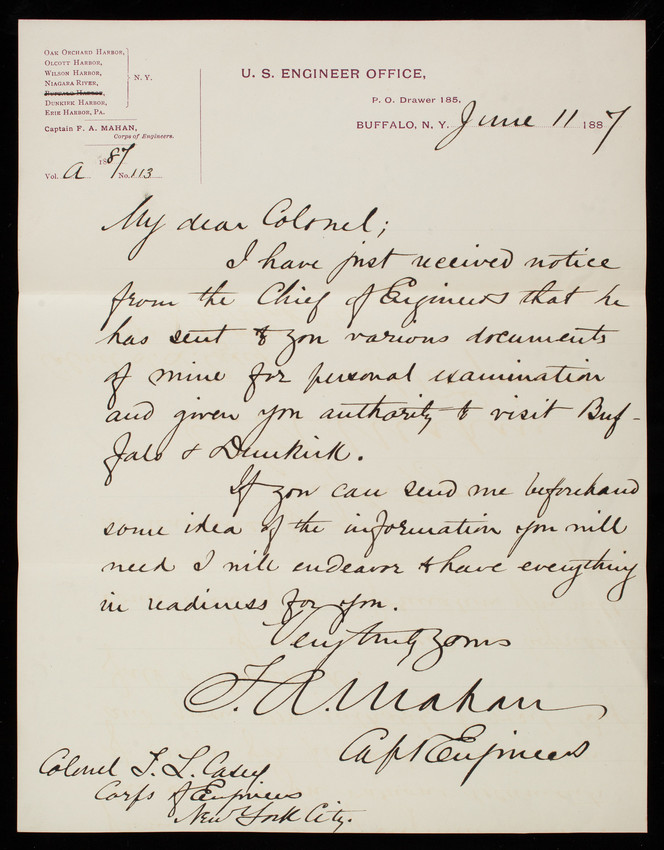 OAK ORCHARD HARBOR,
OLCOTT HARBOR,
WILSON HARBOR,
NIAGARA RIVER,
BUFFALO HARBOR,
DUNKIRK HARBOR,
ERIE HARBOR, PA.
N. Y.
CAPTAIN F. A. MAHAN,
Corps of Engineers.
1887
Vol. A No. 113
U. S. ENGINEER OFFICE,
P. O. Drawer 185.
BUFFALO, N. Y. June 11 1887
My dear Colonel;
I have just received notice
from the Chief of Engineers that he
has sent to you various documents
of mine for personal examination
and given you authority to visit Buf-
falo & Dunkirk.
If you can send me beforehand
some idea of the information you will
need I will endeavor to have everything
in readiness for you.
Very truly yours
F. A. Mahan
Capt Engineers
Colonel T. L. Casey
Corps of Engineers
New York City.